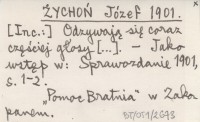 ŻYCHOŃ Józef 1901.
[Inc.:] Odzywają się coraz
częściej głosy [...]. – Jako
wstęp w: Sprawozdanie 1901,
s. 1-2.
"Pomoc Bratnia" w Zako
panem.
BJ/OT1/2693